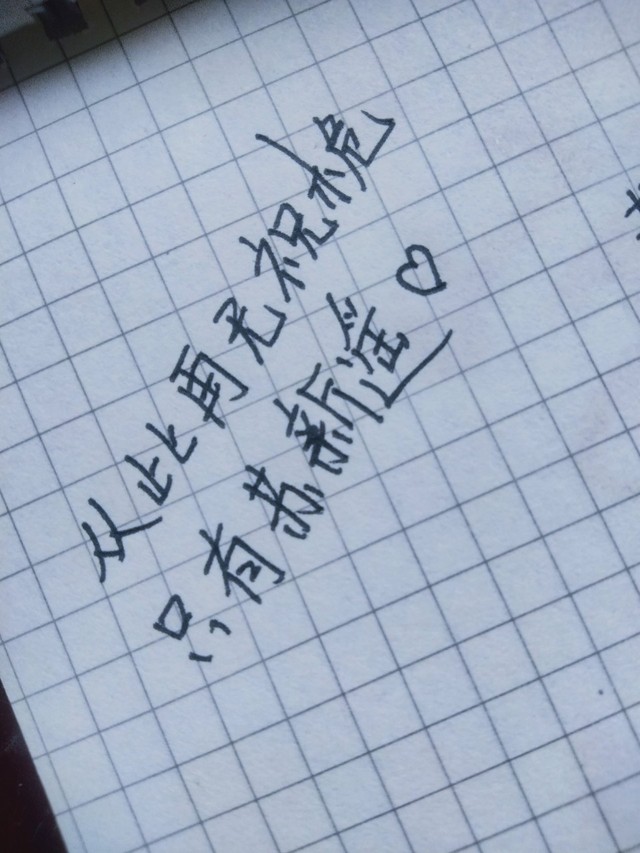 从此再无祝桅
只有苏新遥♡